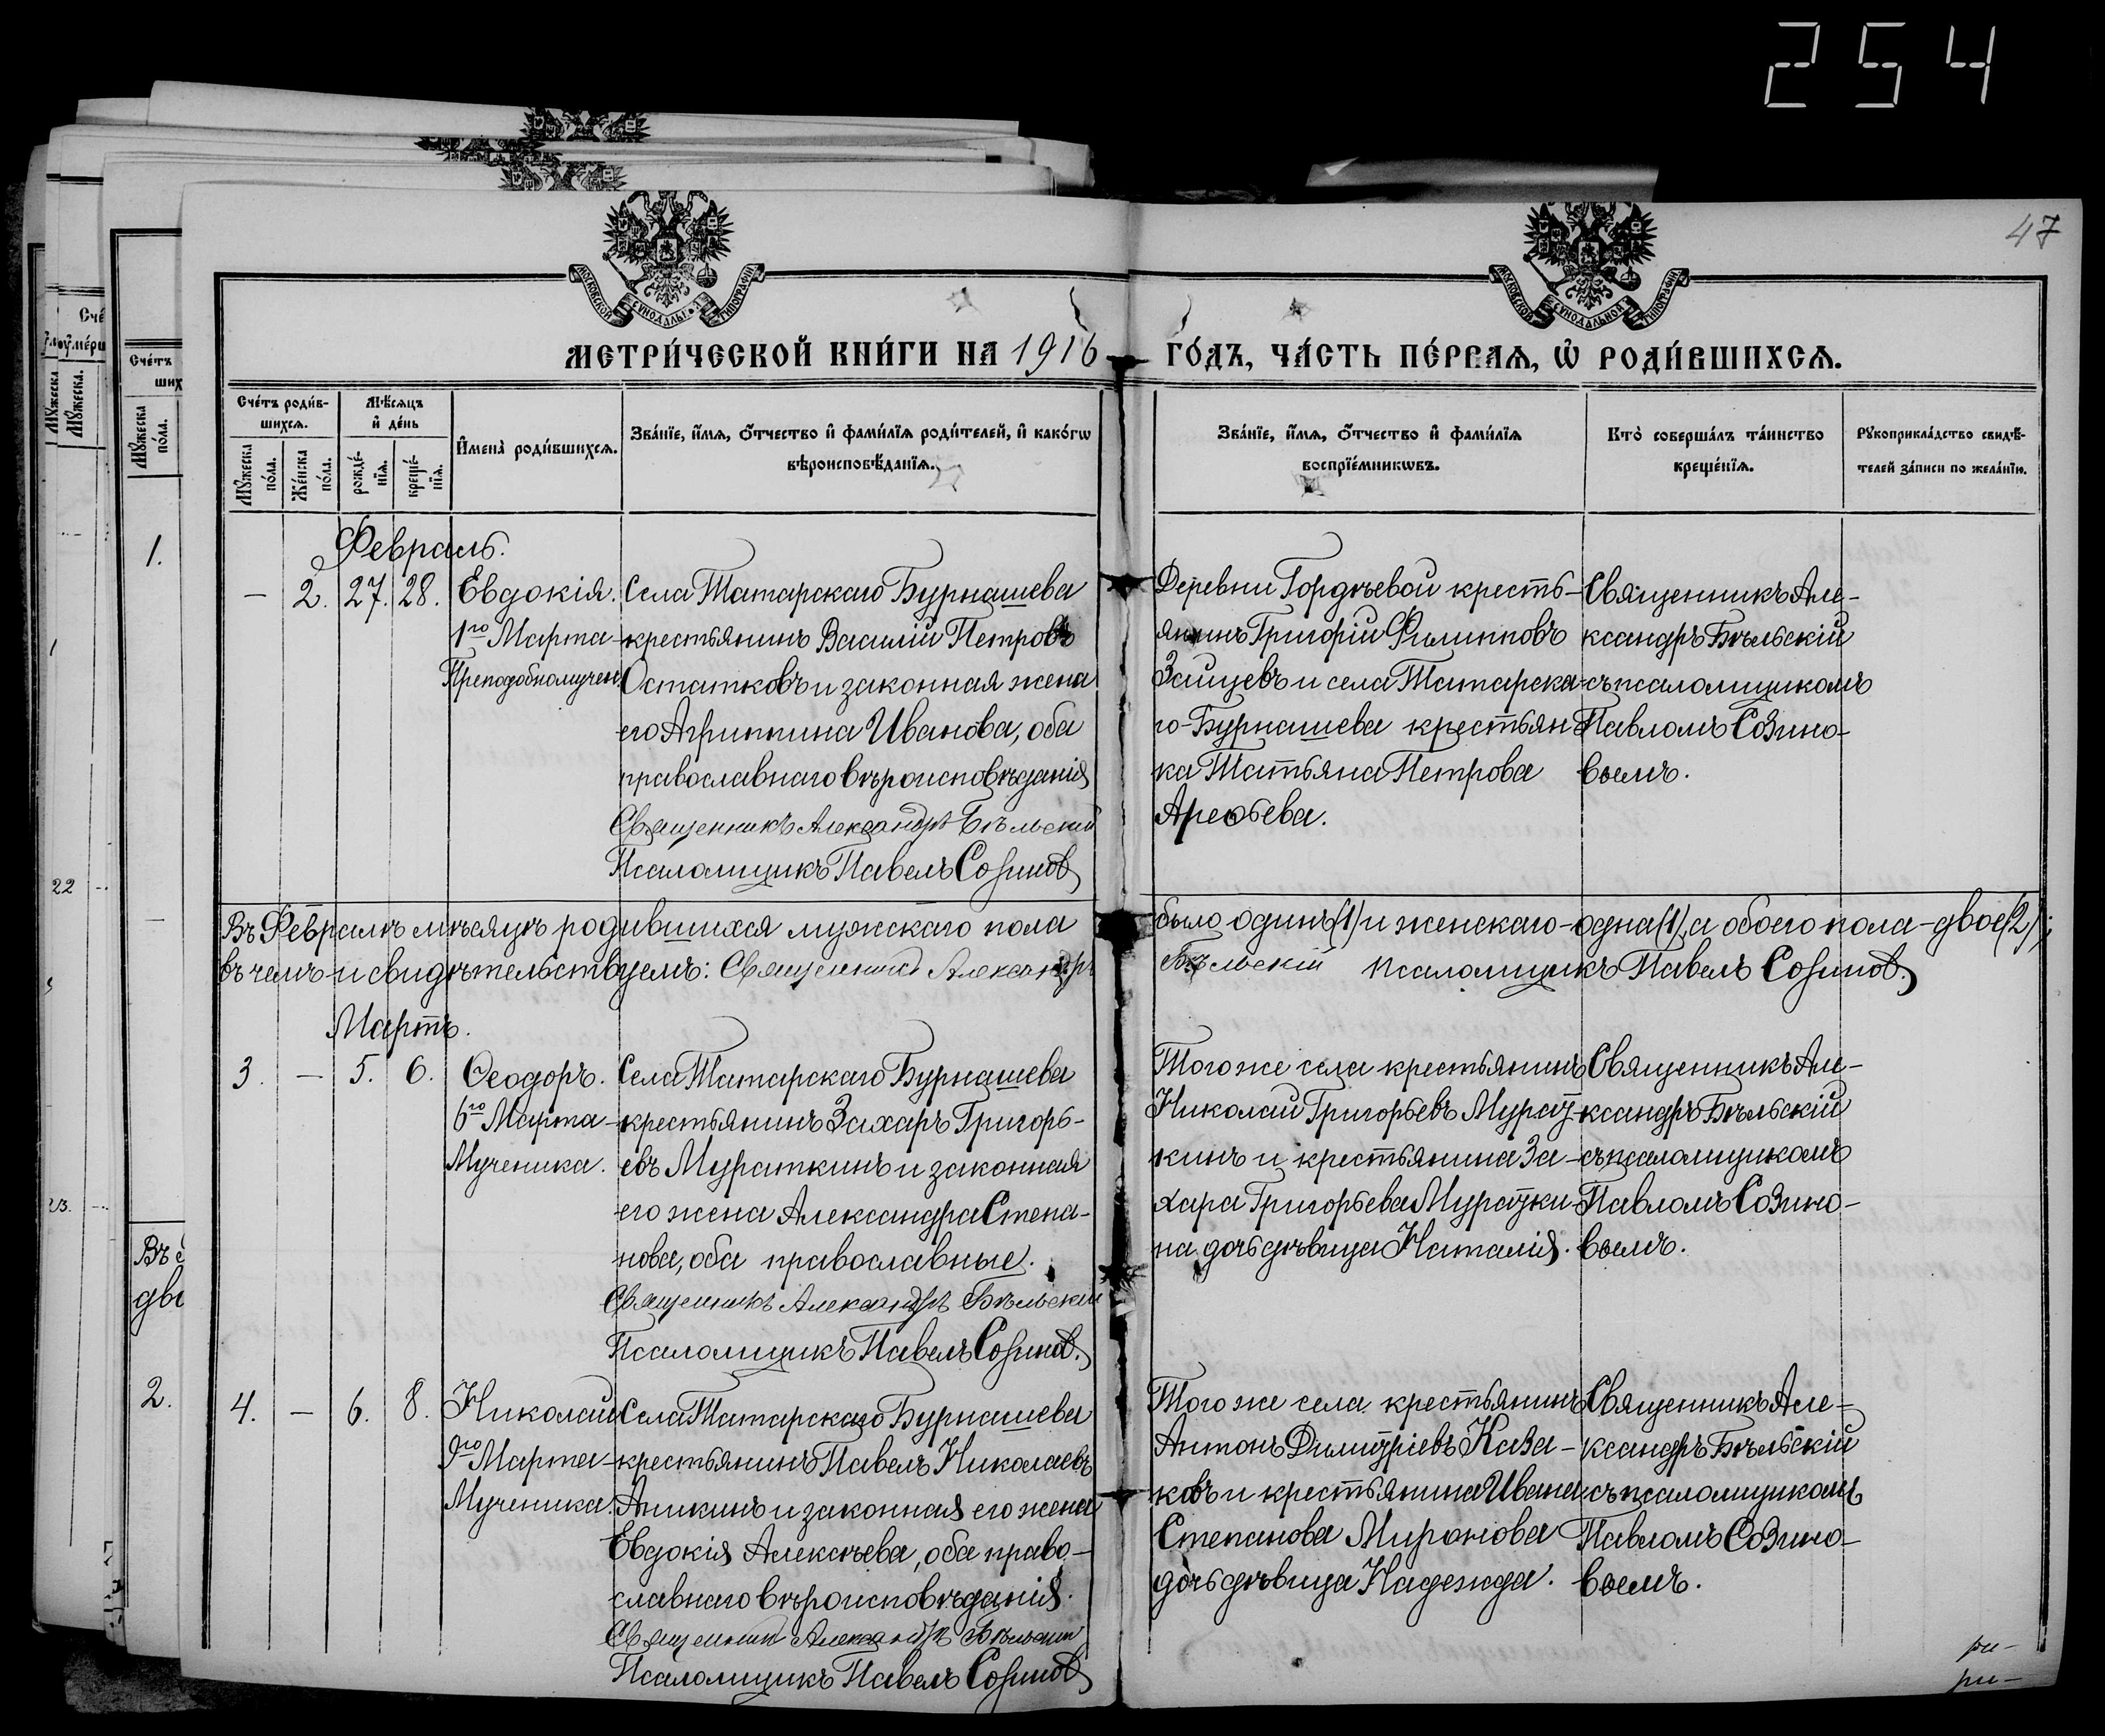 254
47
МОСКОВСКОЙ СУНОДАЛЬНОЙ ТИПОГРАФІИ
МОСКОВСКОЙ СУНОДАЛЬНОЙ ТИПОГРАФІИ
МЕТРИ́ЧЕСКОЙ КНИ́ГИ НА 1916 ГО́ДЪ, ЧА́СТЬ ПЕ́РВАЯ, Ѡ҆ РОДИ́ВШИХСЯ.
Сче́тъ роди́в-
шихся.
Мꙋ́жеска по́ла.
Же́нска по́ла.
Мѣ́сяцъ
и҆ де́нь
рожде́-
нїя.
креще́-
нїя.
И҆мена̀ роди́вшихся.
Зва́нїе, и҆́мя, ѻ҆́тчество и҆ фами́лїя роди́телей, и҆ како́гѡ
вѣроисповѣ́данїя.
Зва́нїе, и҆́мя, ѻ҆́тчество и҆ фами́лїя
воспрїе́мникѡвъ.
Кто̀ соверша́лъ та́инство
креще́нїя.
Рꙋкоприкла́дство свидѣ́-
телей за́писи по жела́нїю.
Февраль.
— 2. 27. 28.
Евдокія.
1го Марта
Преподобномучен.
Села Татарскаго Бурнашева
крестьянинъ Василій Петровъ
Остатковъ и законная жена
его Агриппина Иванова, оба
православнаго вѣроисповѣданія
Священникъ Александръ Бѣльскій
Псаломщикъ Павелъ Созинов
Деревни Гордѣевой кресть-
янинъ Григорій Филипповъ
Зайцевъ и села Татарска-
го-Бурнашева крестьян-
ка Татьяна Петрова
Арефьева.
Священникъ Але-
ксандръ Бѣльскій
съ псаломщикомъ
Павломъ Созино-
вымъ.
Въ Февралѣ мѣсяцѣ родившихся мужскаго пола было одинъ (1) и женскаго-одна (1), а обоего пола-двое (2);
въ чемъ и свидѣтельствуемъ: Священникъ Александръ Бѣльскій Псаломщикъ Павелъ Созинов.
Мартъ.
3. — 5. 6.
Ѳеодоръ.
6го Марта
Мученика.
Села Татарскаго Бурнашева
крестьянинъ Захаръ Григорь-
евъ Мураткинъ и законная
его жена Александра Степа-
нова, оба православные.
Священникъ Александръ Бѣльскій
Псаломщикъ Павелъ Созинов.
Того же села крестьянинъ
Николай Григорьевъ Мурат-
кинъ и крестьянина За-
хара Григорьева Муратки-
на дочь дѣвица Наталія.
Священникъ Але-
ксандръ Бѣльскій
съ псаломщикомъ
Павломъ Созино-
вымъ.
4. — 6. 8.
Николай
9го Марта
Мученика.
Села Татарскаго Бурнашева
крестьянинъ Павелъ Николаевъ
Аникинъ и законная его жена
Евдокія Алексѣева, оба право-
славнаго вѣроисповѣданія.
Священникъ Александръ Бѣльскій
Псаломщикъ Павелъ Созинов
Того же села крестьянинъ
Антонъ Димитріевъ Каза-
ковъ и крестьянина Ивана
Степанова Миронова
дочь дѣвица Надежда.
Священникъ Але-
ксандръ Бѣльскій
съ псаломщикомъ
Павломъ Созино-
вымъ.
ри-
ри-
Сче́тъ
ших
Мꙋ́жеска
по́ла.
1.
2.
22
23.